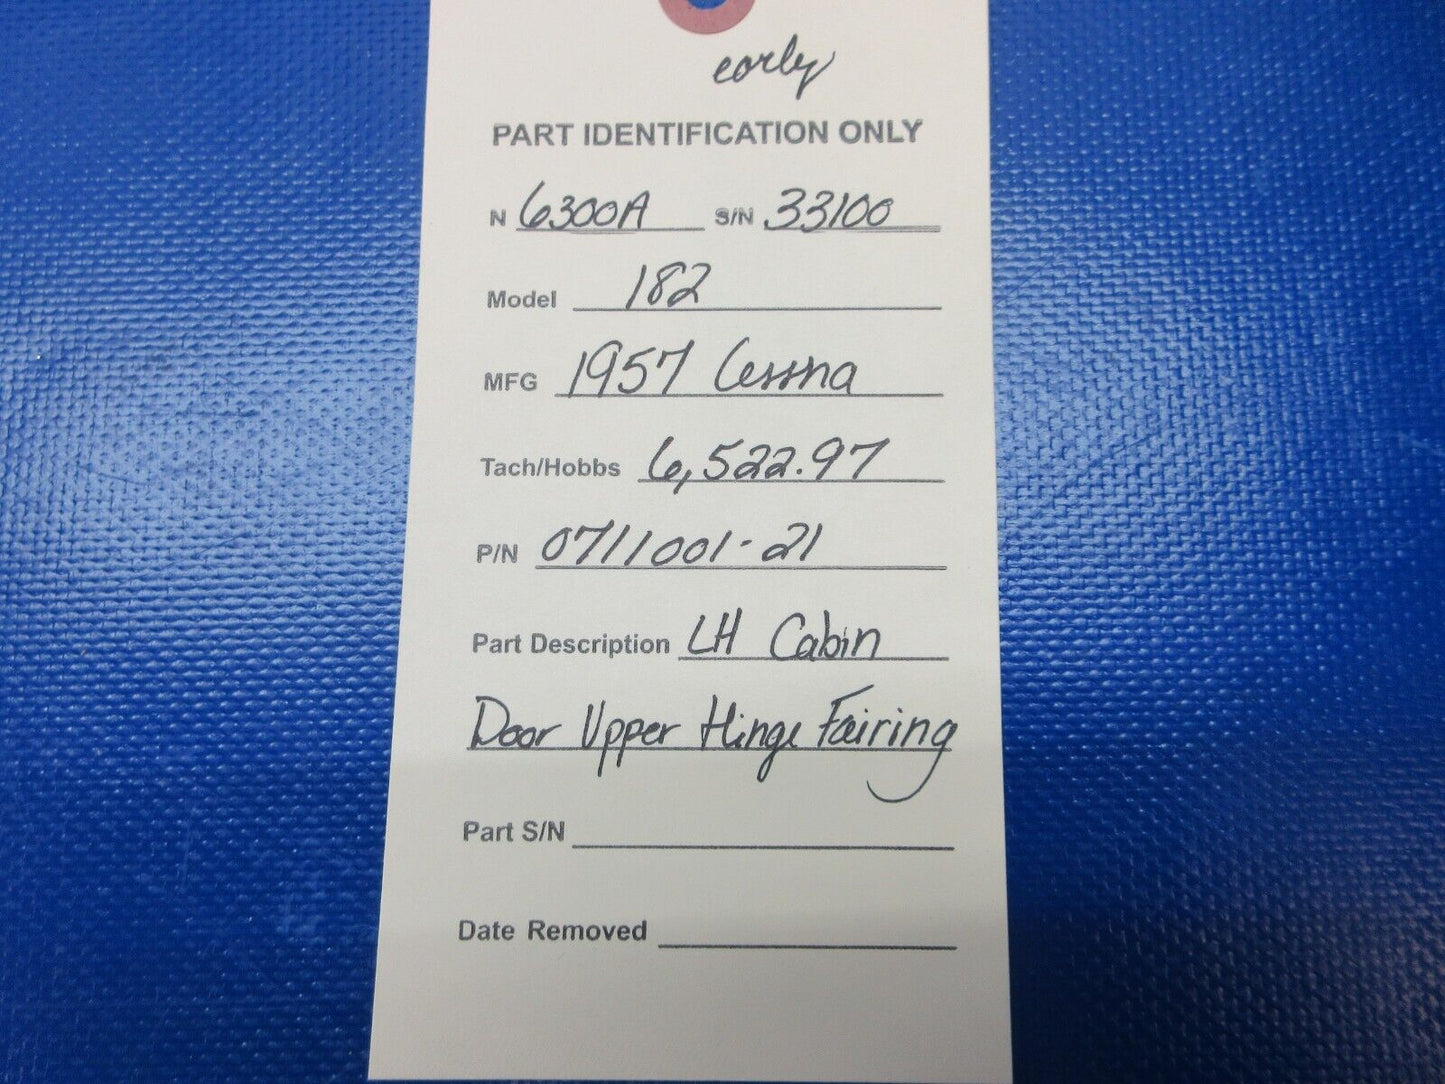 early
PART IDENTIFICATION ONLY
N 6300A S/N 33100
Model 182
MFG 1957 Cessna
Tach/Hobbs 6,522.97
P/N 0711001-21
Part Description LH Cabin
Door Upper Hinge Fairing
Part S/N
Date Removed